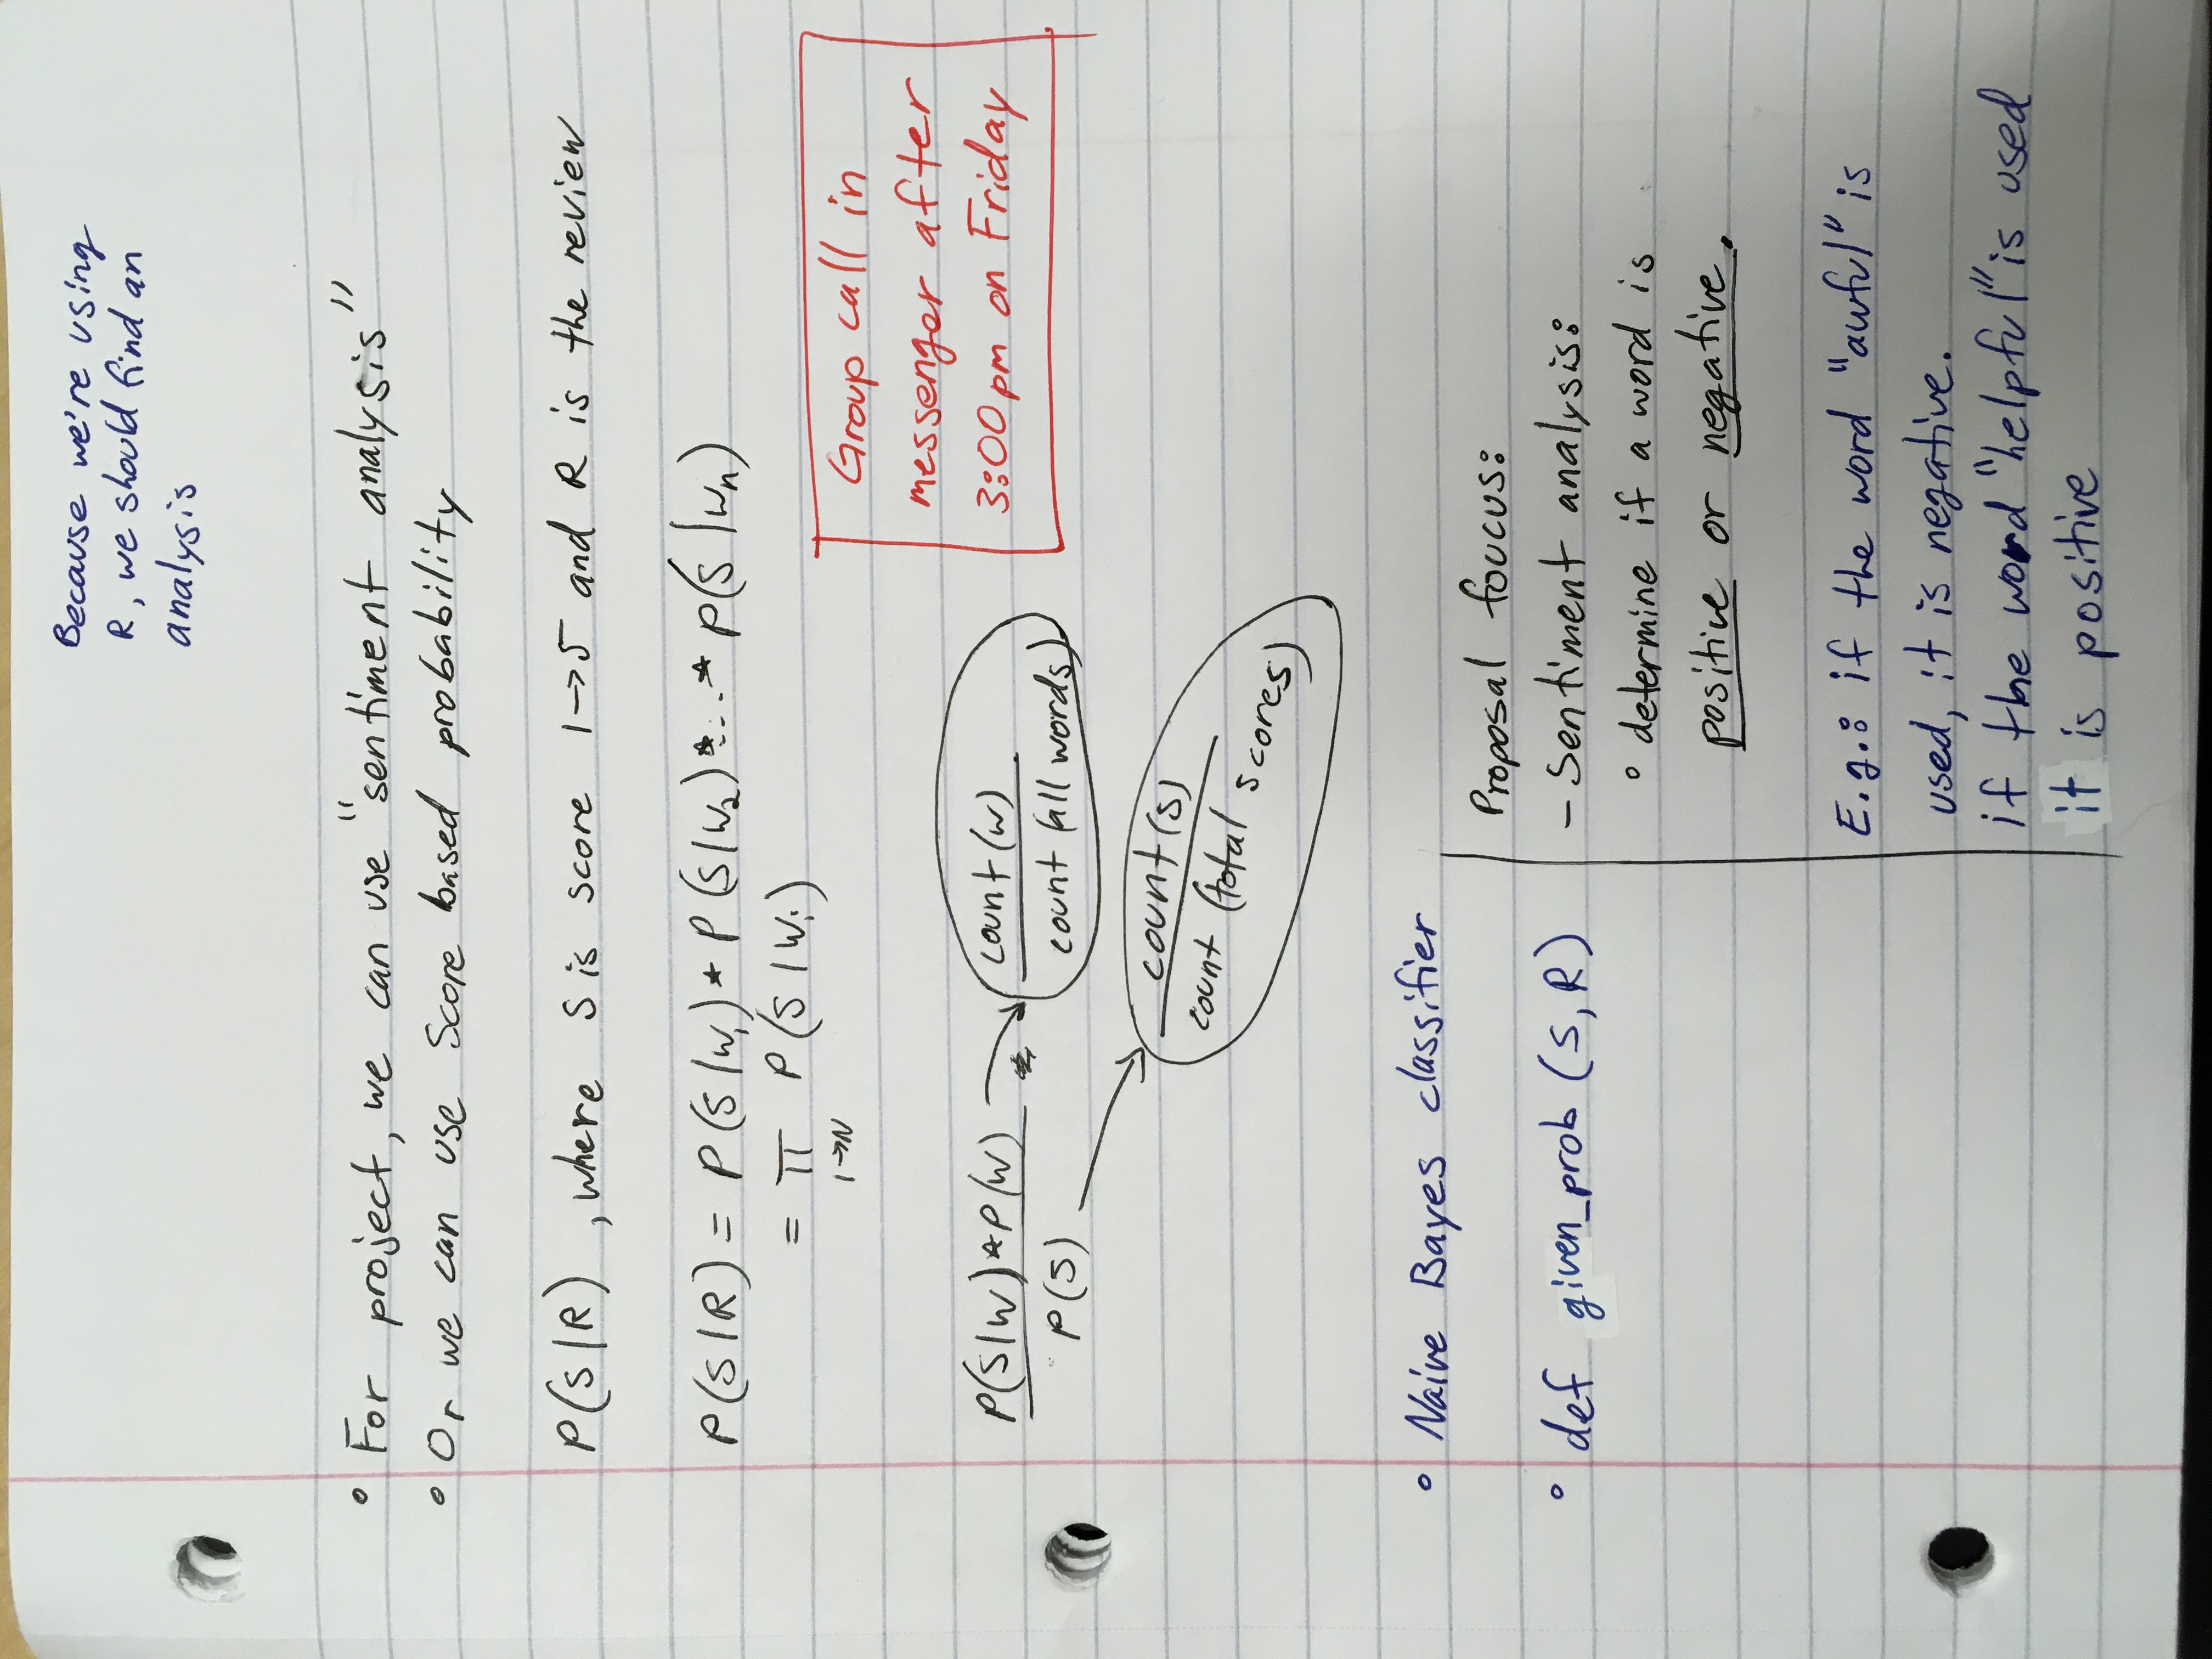 Because we're using
R, we should find an
analysis
° For project, we can use "sentiment analysis"
° Or we can use Score based probability
P(S|R) , where S is score 1→5 and R is the review
P(S|R) = P(S|w₁) * P(S|w₂) * ... * P(S|wₙ)
= π P(S|wᵢ)
1→N
Group call in
messenger after
3:00pm on Friday
P(S|w) * P(w)
P(S)
count (w)
count (all words)
count (s)
count (total scores)
° Naive Bayes classifier
° def given_prob (S, R)
Proposal foucus:
– Sentiment analysis:
° determine if a word is
positive or negative.
E.g.: if the word "awful" is
used, it is negative.
if the word "helpful" is used
it is positive